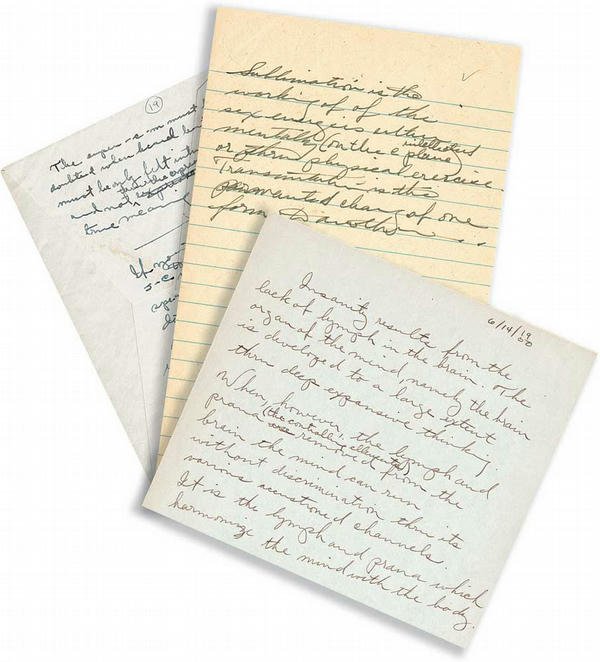 19
The super-
doubted when
must be only felt
and not
true meaning
If you
Sublimation is the
working of of the
sex energies either
mentally (on the intellectual plane)
or thru physical exercise.
Transmutation is the
permanted change of one
form to another ...
6/14/1900
Insanity results from the
lack of lymph in the brain. The
organ of the mind, namely the brain
is developed to a large extent
thru deep expansive thinking.
When, however, the lymph and
prana (the controlling elements)
are removed from the
brain the mind can run
without discrimination thru its
various accustomed channels.
It is the lymph and prana which
harmonize the mind with the body.